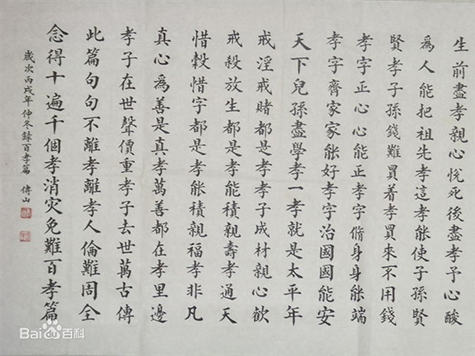 生前盡孝親心悦死後盡孝子心酸
為人能把祖先孝這孝能使子孫賢
賢孝子孫錢難買着孝買來不用錢
孝字正心心能正孝字脩身身能端
孝字齊家家能好孝字治國國能安
天下兒孫盡學孝一孝就是太平年
戒淫戒賭都是孝孝子成材親心歡
戒殺放生都是孝能積親壽孝通天
惜穀惜字都是孝能積親福孝非凡
真心為善是真孝萬善都在孝里邊
孝子在世聲價重孝子去世萬古傳
此篇句句不離孝離孝人倫難周全
念得十遍千個孝消灾免難百孝篇
歲次丙戌年仲冬錄百孝篇 傅山
Bai百科